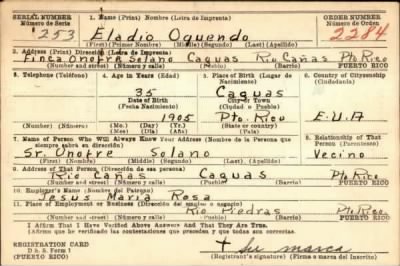 SERIAL NUMBER 1. Name (Print) Nombre (Letra de Imprenta) ORDER NUMBER
Número de Serie Número de Orden
253 Eladio Oquendo 2284
(First) (Primer Nombre) (Middle) (Segundo) (Last) (Apellido)
2. Address (Print) Dirección (Letra de Imprenta)
Finca Onofre Solano Caguas Rio Cañas Pto Rico
(Number and street) (Número y calle) (Town) (Pueblo) PUERTO RICO
3. Telephone (Teléfono) 4. Age in Years (Edad) 5. Place of Birth (Lugar de Nacimiento) 6. Country of Citizenship (Ciudadanía)
35 Caguas
Date of Birth City or Town
(Fecha Nacimiento) (Ciudad o Pueblo)
1905 Pto. Rico E.U.A
Number (Número) (Mo.) (Day) (Yr.) (State or country)
(Mes) (Día) (Año)
7. Name of Person Who Will Always Know Your Address (Nombre de la Persona que siempre sabrá su dirección) 8. Relationship of That Person (Parentesco)
Sr. Onofre Solano Vecino
(First) (Nombre) (Middle) (Segundo) (Last) (Apellido)
9. Address of That Person (Dirección de esa persona)
Rio Cañas Caguas Pto Rico
(Number and street) (Número y calle) (Town) (Pueblo) PUERTO RICO
10. Employer's Name (Nombre del Patrono)
Jesus Maria Rosa
11. Place of Employment or Business (Dirección del empleo o negocio)
Rio Piedras Pto Rico
(Number and street) (Número y calle) (Town) (Pueblo) PUERTO RICO
I Affirm That I Have Verified Above Answers And That They Are True.
Afirmo que he verificado las contestaciones que preceden y que todas son correctas.
REGISTRATION CARD
D. S. S. Form 1
PUERTO RICO
+ su marca
(Registrant's signature) (Firma del inscrito)